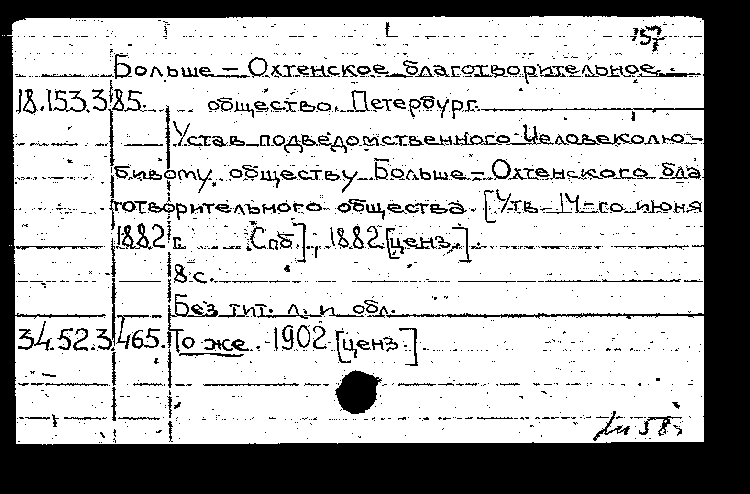 157
Больше – Охтенское благотворительное
18.153.3.85. общество. Петербург.
Устав подведомственного Человеколю-
бивому обществу Больше – Охтенского бла
готворительного общества [Утв. 14-го июня
1882 г. Спб.], 1882 [ценз.].
8 с.
Без тит. л. и обл.
34.52.3.465. То же. 1902 [ценз.]
58